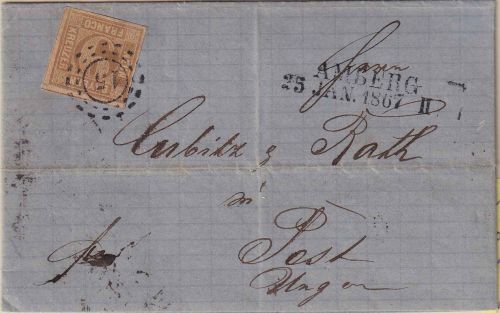 FRANCO
KREUZER
Herrn
AMBERG
25 JAN. 1867
II
Cubitz & Rath
in
Pest
Ungarn